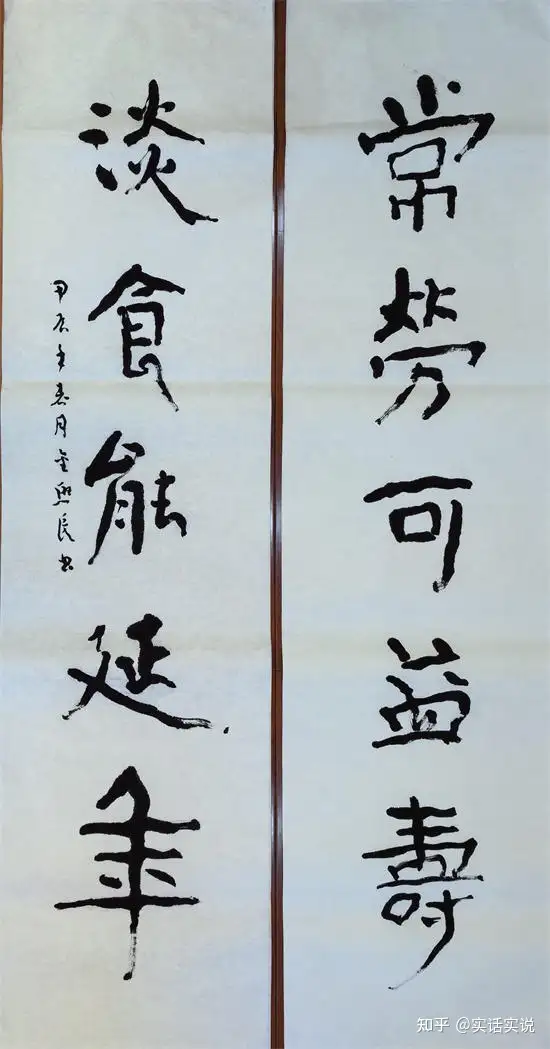 常勞可益壽
淡食能延年
甲辰年春月金興長书
知乎 @实话实说